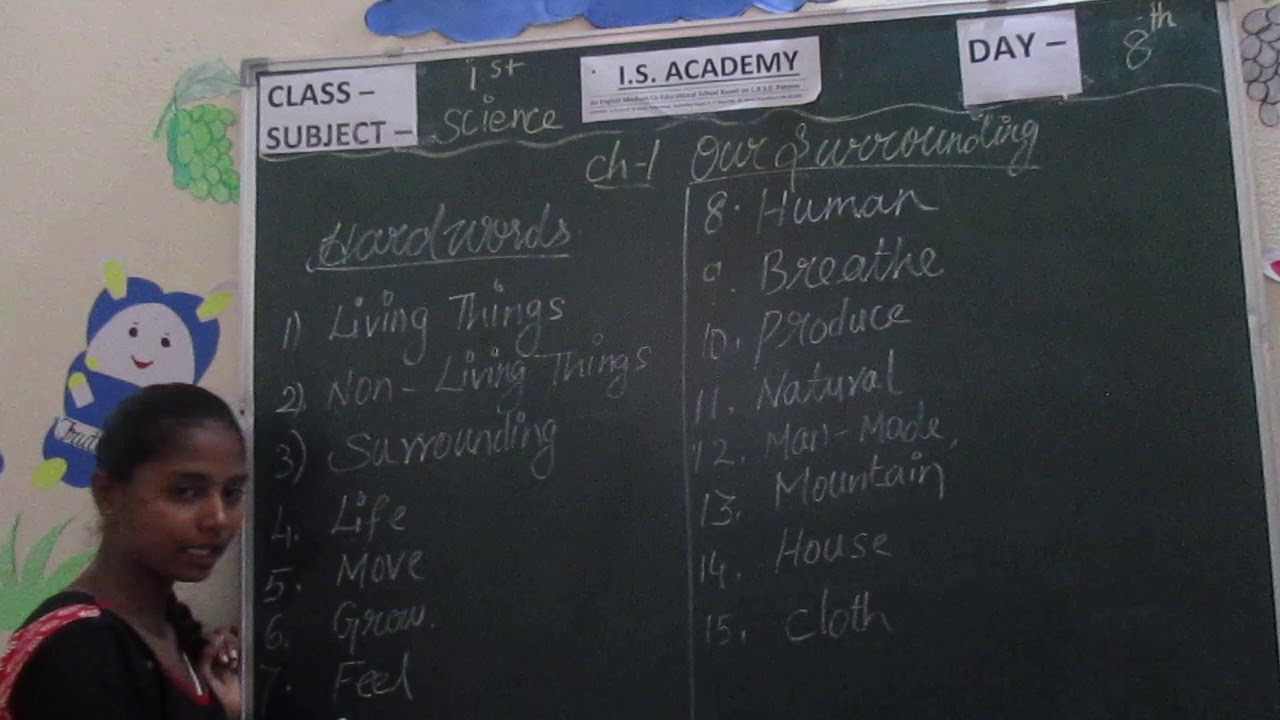 CLASS – 1st
SUBJECT – Science
I.S. ACADEMY
An English Medium Co-Educational School Based on C.B.S.E. Pattern
DAY – 8th
Ch-1 Our Surrounding
Hard words
1) Living Things
2) Non-Living Things
3) Surrounding
4. Life
5. Move
6. Grow.
7. Feel
8. Human
9. Breathe
10. Produce
11. Natural
12. Man-Made,
13. Mountain
14. House
15. Cloth